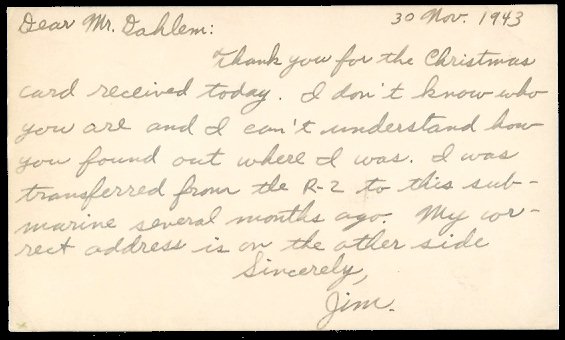 Dear Mr. Dahlem: 30 Nov. 1943
Thank you for the Christmas
card received today. I don't know who
you are and I can't understand how
you found out where I was. I was
transferred from the R-2 to this sub-
marine several months ago. My cor-
rect address is on the other side
Sincerely,
Jim.